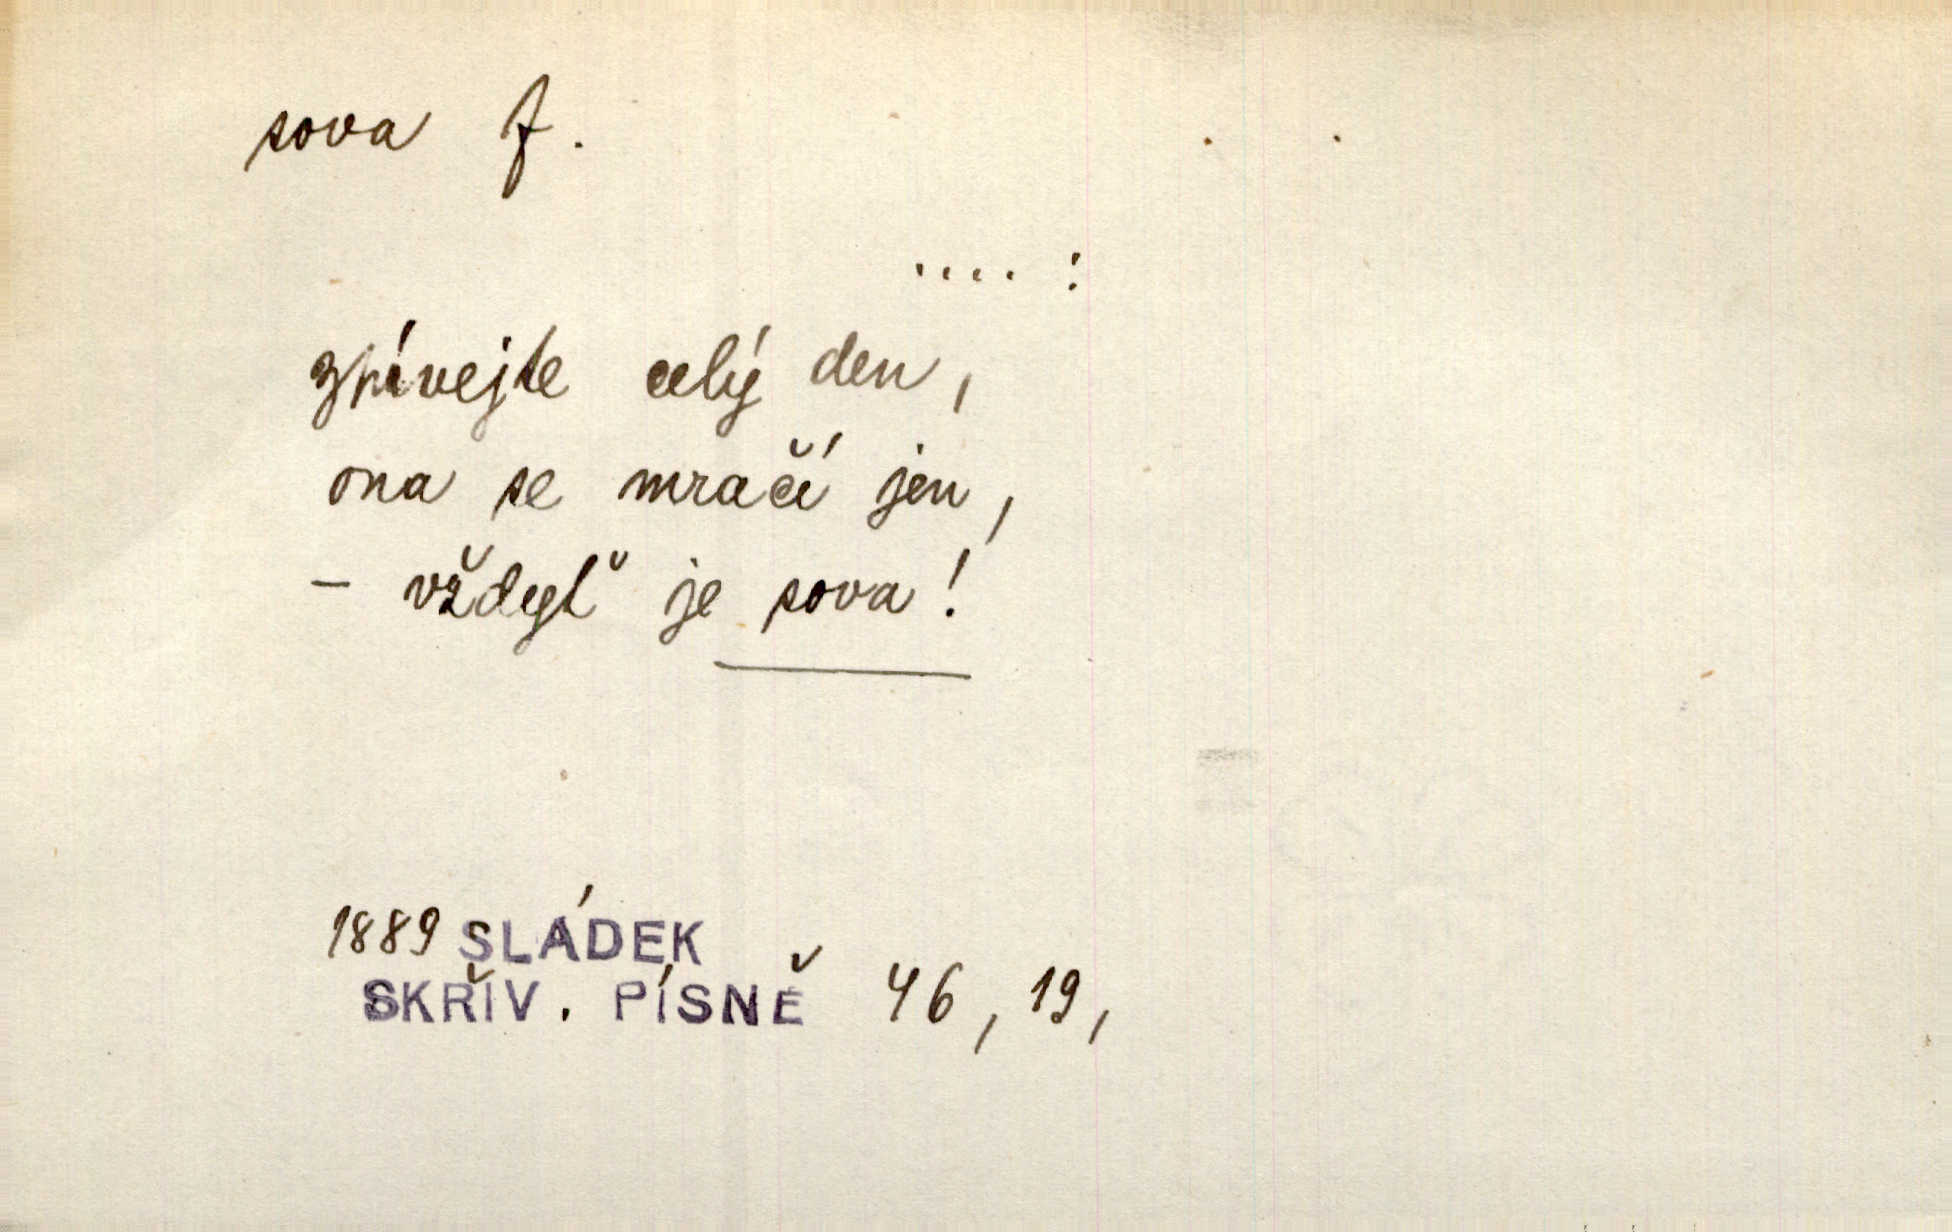 sova f.
.... :
zpívejte celý den,
ona se mračí jen,
– vždyť je sova!
1889 SLÁDEK
SKŘIV. PÍSNĚ 46, 19,